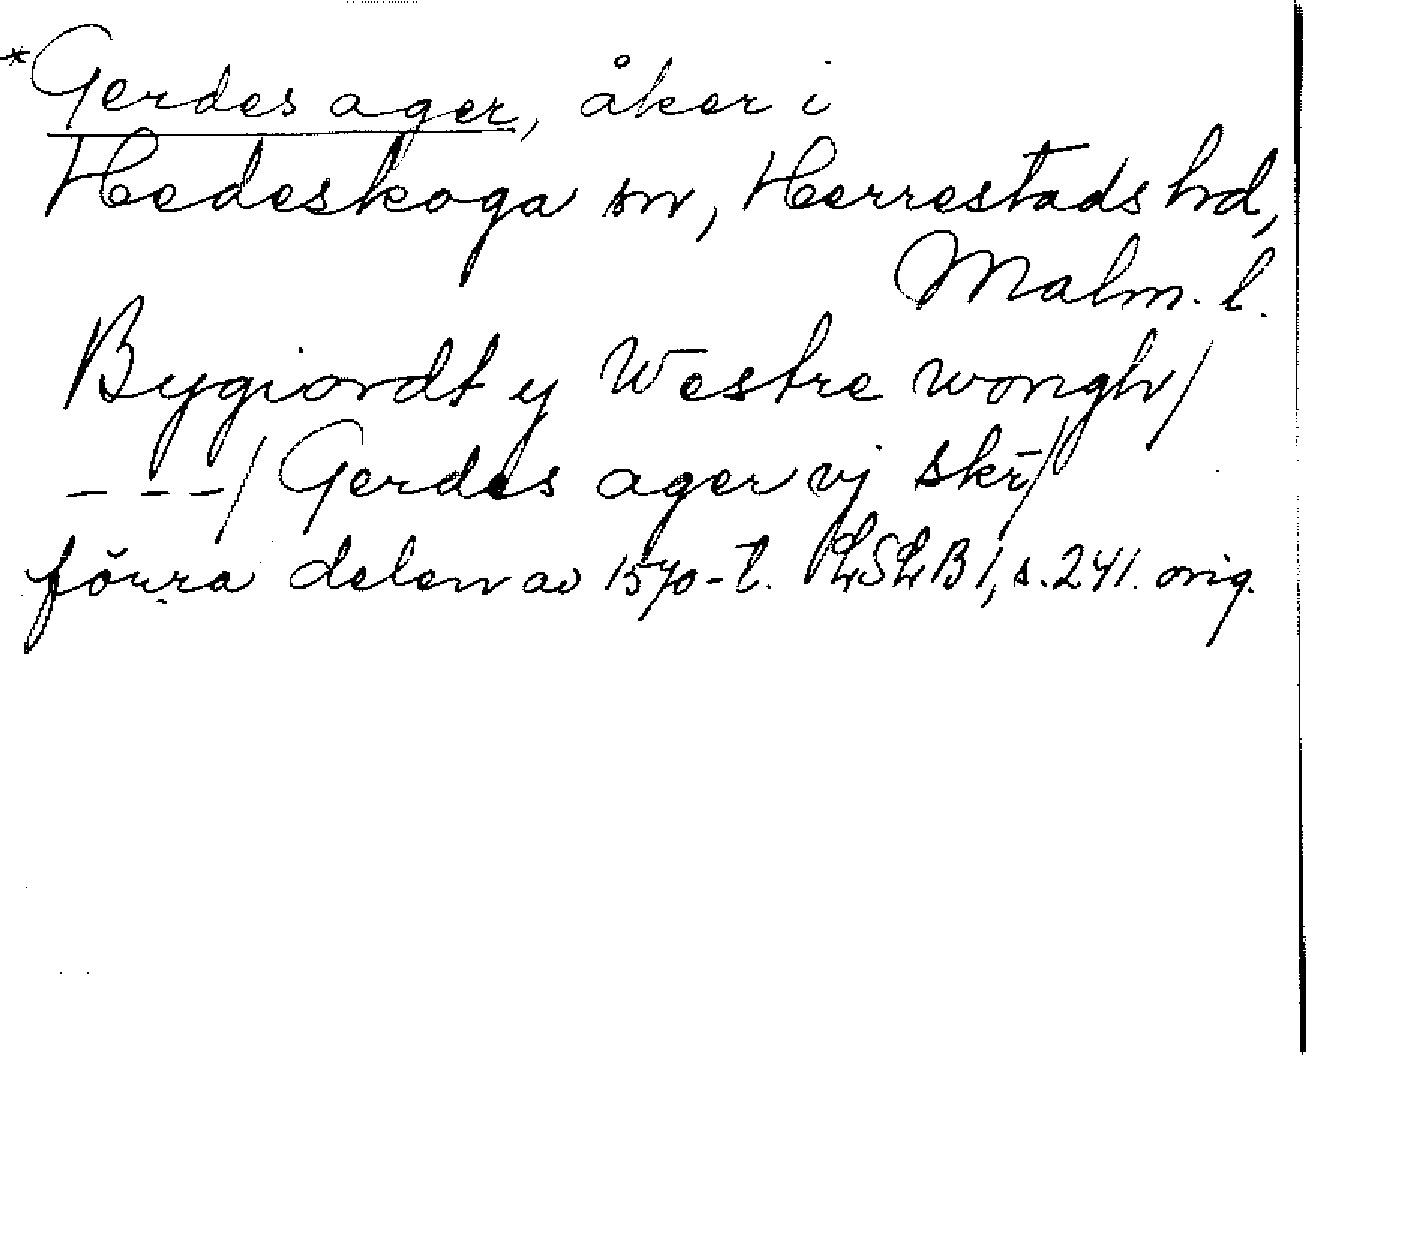 *Gerdes ager, åker i
Hedeskoga sn, Herrestads hd,
Malm. l.
Bygiordt y Westre wongh/
- - -/ Gerdes ager vj skr̄/
förra delen av 1570-t. LSLB 1, s. 241. orig.